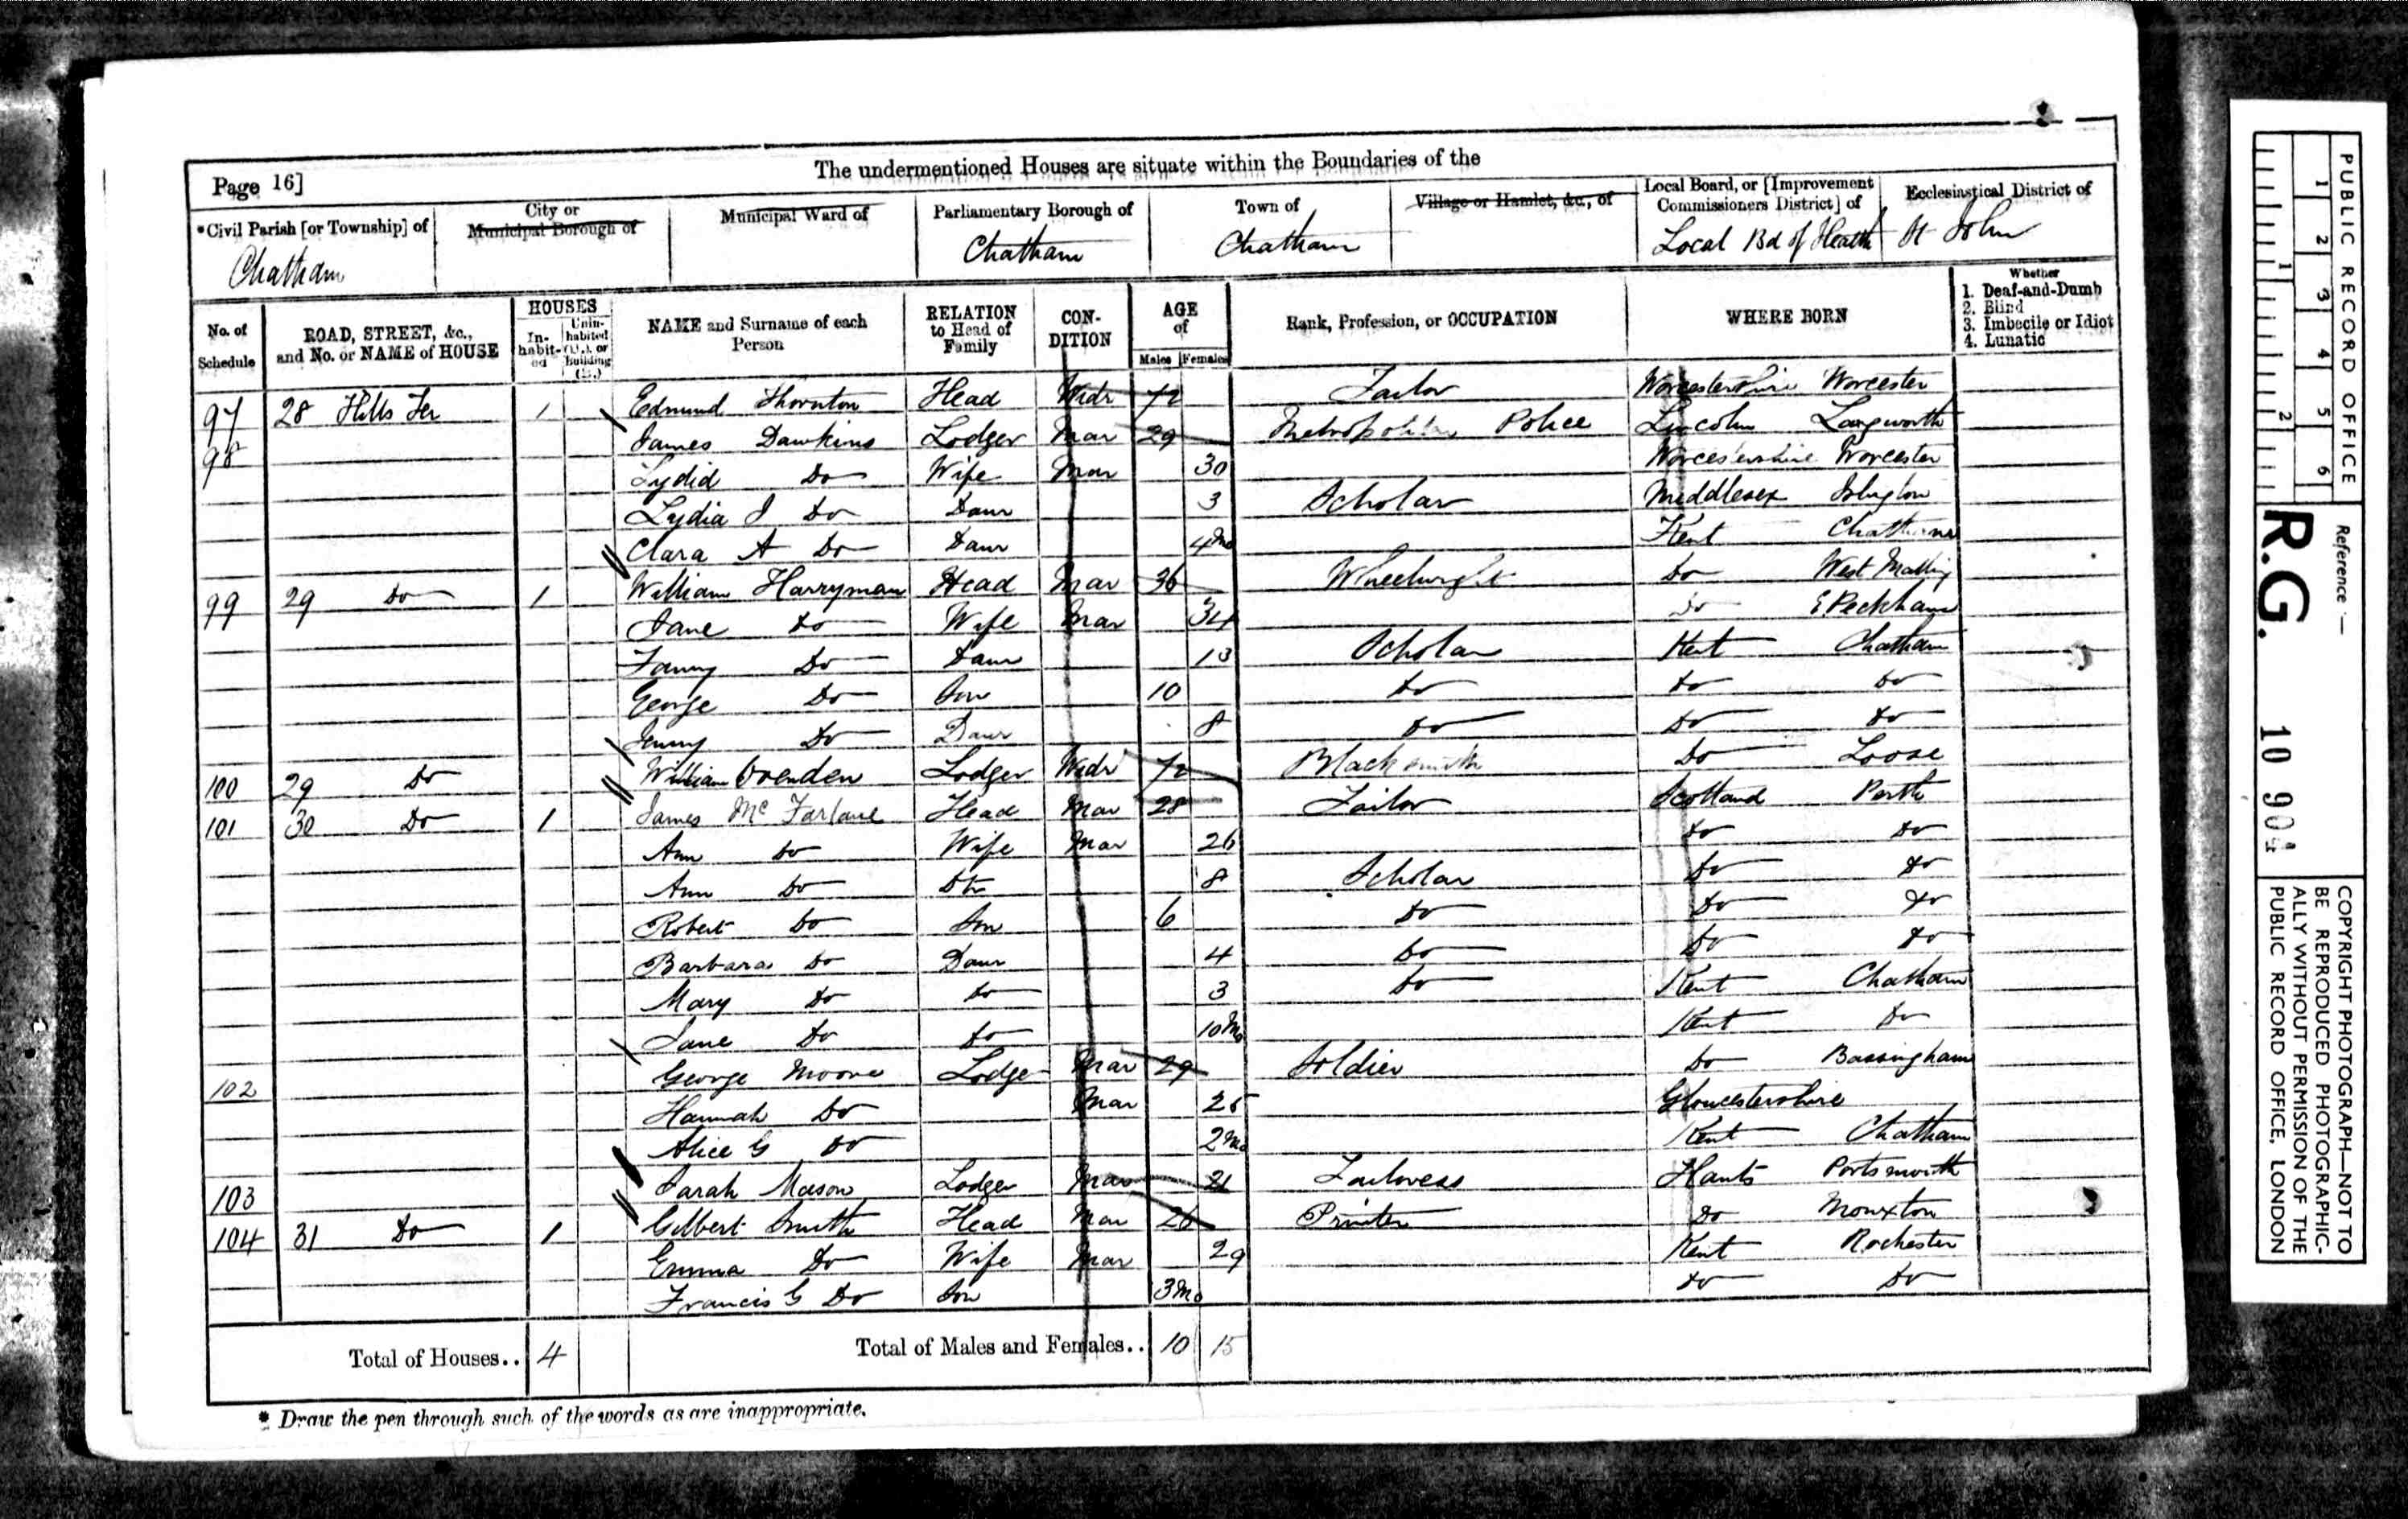 The undermentioned Houses are situate within the Boundaries of the
Page 16]
*Civil Parish [or Township] of
Chatham
City or Municipal Borough of
Municipal Ward of
Parliamentary Borough of
Chatham
Town of
Chatham
Village or Hamlet, &c., of
Local Board, or [Improvement Commissioners District] of
Local Bd of Health
Ecclesiastical District of
St John
No. of Schedule
ROAD, STREET, &c., and No. or NAME of HOUSE
HOUSES
In-habit-ed
Unin-habited (U.), or Building (B.)
NAME and Surname of each Person
RELATION to Head of Family
CON-DITION
AGE of
Males Females
Rank, Profession, or OCCUPATION
WHERE BORN
Whether
1. Deaf-and-Dumb
2. Blind
3. Imbecile or Idiot
4. Lunatic
97 28 Hills Ter 1 Edmund Thornton Head Widr 72 Tailor Worcestershire Worcester
98 James Dawkins Lodger Mar 29 Metropolitan Police Lincoln Langworth
Lydia Do Wife Mar 30 Worcestershire Worcester
Lydia J Do Daur 3 Scholar Middlesex Islington
Clara A Do Daur 4Mo Kent Chatham
99 29 Do 1 William Harryman Head Mar 36 Wheelwright Do West Malling
Jane Do Wife Mar 34 Do E Peckham
Fanny Do Daur 13 Scholar Kent Chatham
George Do Son 10 Do Do Do
Jenny Do Daur 8 Do Do Do
100 29 Do William Ovenden Lodger Widr 72 Blacksmith Do Loose
101 30 Do 1 James McFarlane Head Mar 28 Tailor Scotland Perth
Ann Do Wife Mar 26 Do Do
Ann Do Dtr 8 Scholar Do Do
Robert Do Son 6 Do Do Do
Barbara Do Daur 4 Do Do Do
Mary Do Do 3 Do Kent Chatham
Jane Do Do 10Mo Kent Do
102 George Moore Lodger Mar 29 Soldier Do Bassingham
Hannah Do Mar 25 Gloucestershire
Alice G Do 2Mo Kent Chatham
103 Sarah Mason Lodger Mar 21 Tailoress Hants Portsmouth
104 31 Do 1 Gilbert Smith Head Mar 26 Printer Do Monxton
Emma Do Wife Mar 29 Kent Rochester
Francis G Do Son 3Mo Do Do
Total of Houses.. 4 Total of Males and Females.. 10 15
* Draw the pen through such of the words as are inappropriate.
PUBLIC RECORD OFFICE
1 2 3 4 5 6
1 2
Reference :—
R.G. 10 904
COPYRIGHT PHOTOGRAPH—NOT TO
BE REPRODUCED PHOTOGRAPHIC-
ALLY WITHOUT PERMISSION OF THE
PUBLIC RECORD OFFICE, LONDON